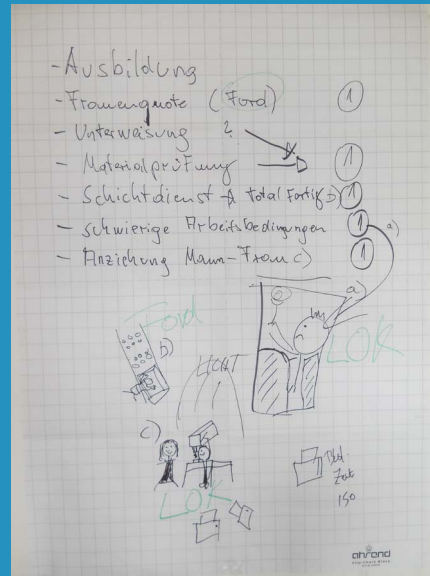 - Ausbildung
- Frauenquote (Ford) 1
- Unterweisung ?
- Materialprüfung 1
- Schichtdienst total b) 1
- schwierige Arbeitsbedingungen 1 a)
- Anziehung Mann-Frau c) 1
a)
Ford
b)
LOK
LICHT
c)
LOK
Zeit
ISO
ahrend